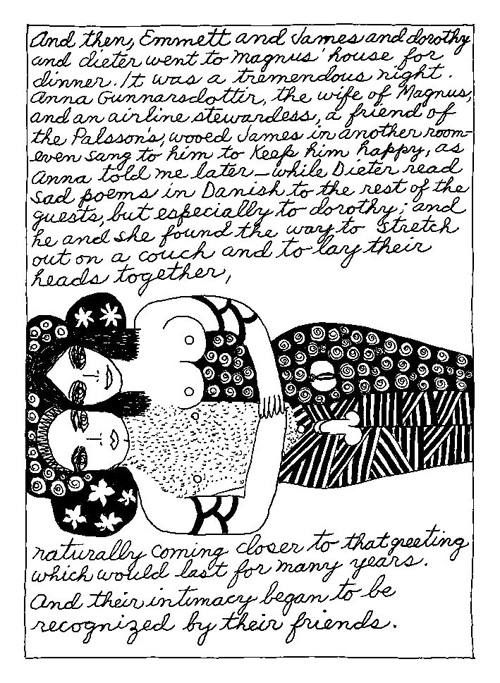 And then, Emmett and James and dorothy
and dieter went to Magnus' house for
dinner. It was a tremendous night.
Anna Gunnarsdottir, the wife of Magnus,
and an airline stewardess, a friend of
the Palsson's, wooed James in another room—
even sang to him to keep him happy, as
Anna told me later—while Dieter read
sad poems in Danish to the rest of the
guests, but especially to dorothy; and
he and she found the way to stretch
out on a couch and to lay their
heads together,
naturally coming closer to that greeting
which would last for many years.
And their intimacy began to be
recognized by their friends.